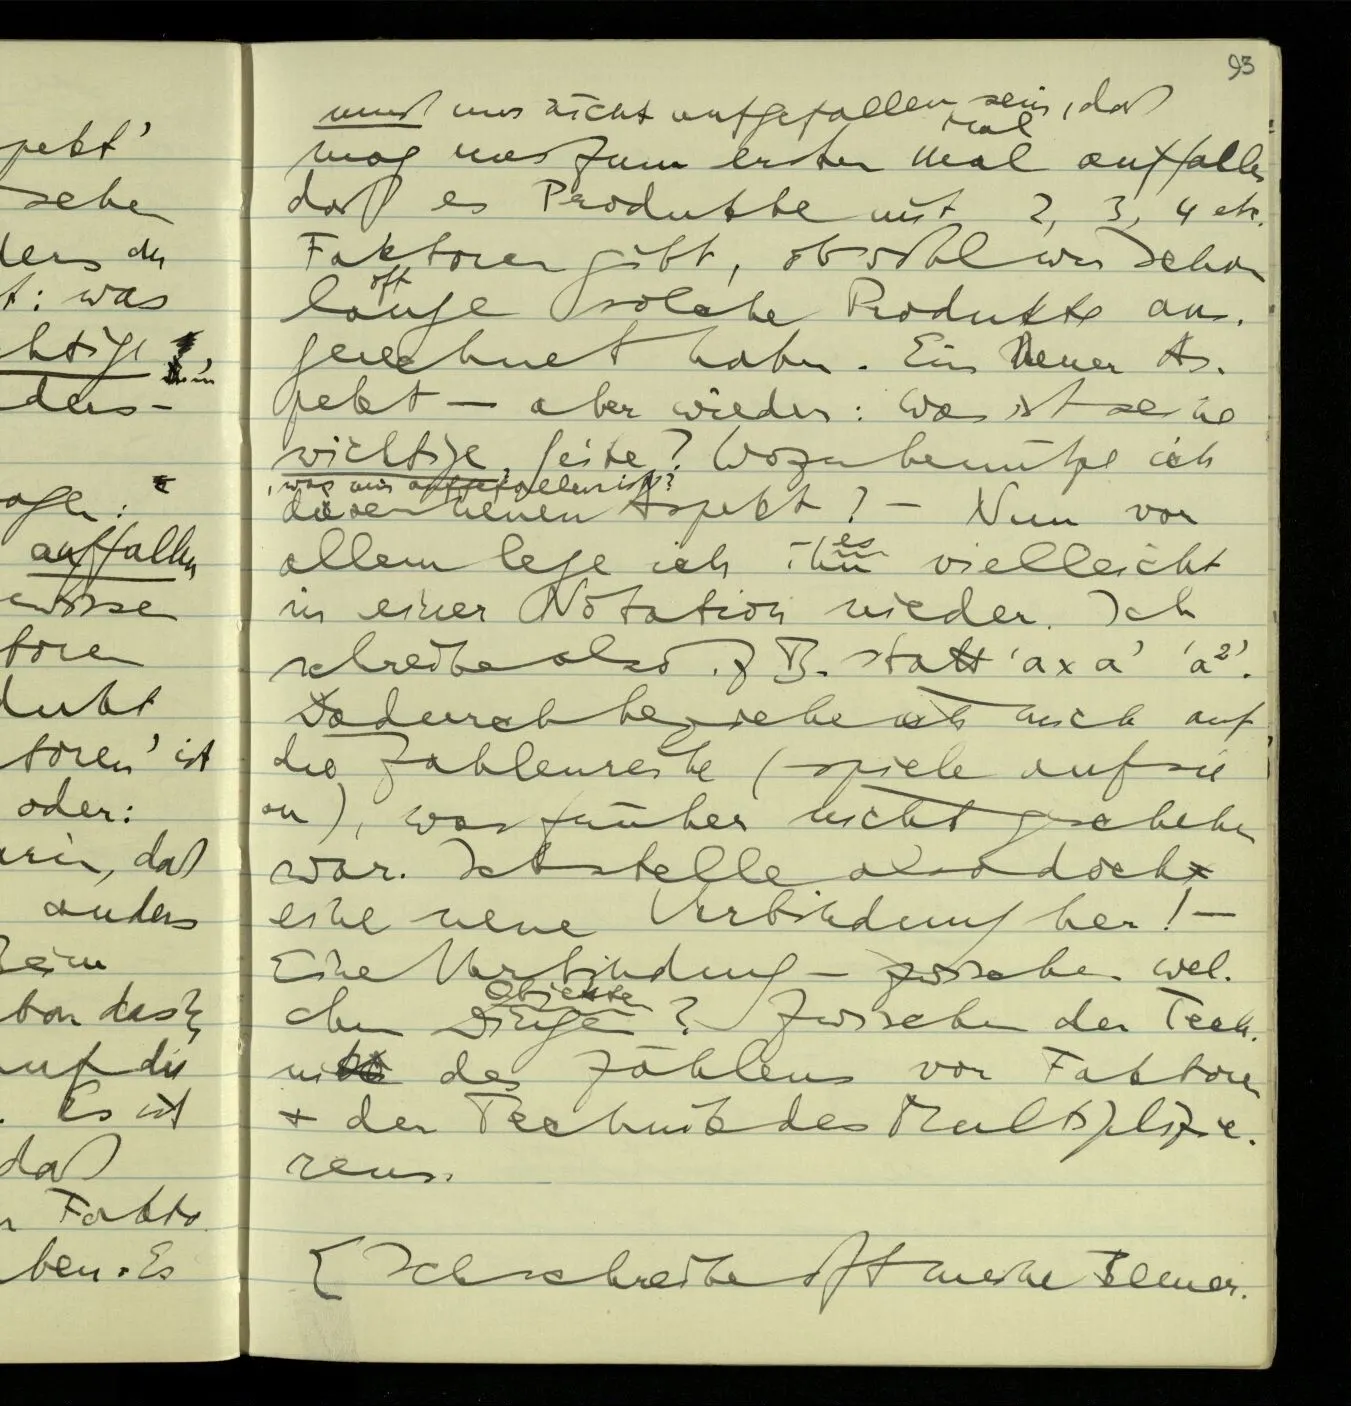 93
pekt'
sehen
ders der
t: was
chtige
ders-
age:
auffallen
ewisse
toren
dukt
toren' ist
oder:
arin, daß
anders
Beim
auf die
Es ist
daß
n Fakto
ben. Es
muß uns nicht aufgefallen sein, daß
mag uns zum ersten Mal Mal auffallen
daß es Produkte mit 2, 3, 4 etc.
Faktoren gibt, obwohl wir schon
oft
lange solche Produkte aus.
gerechnet haben. Ein Neuer As.
pekt — aber wieder: was ist seine
wichtige Seite? Wozu benütze ich
, was mir aufgefallen ist?
diesen neuen Aspekt? — Nun vor
allem lege ich ihn es vielleicht
in einer Notation nieder. Ich
schreibe also z.B. statt 'a x a' 'a²'.
Dadurch beziehe ich mich auf
die Zahlenreihe (spiele auf sie
an), was früher nicht geschehen
war. Ich stelle also doch
eine neue Verbindung her! —
Eine Verbindung — zwischen wel.
chen Dingen Objekten? Zwischen der Tech.
nik des Zählens von Faktoren
+ der Technik des Multiplizie.
rens.
[Ich schreibe oft meine Bemer.